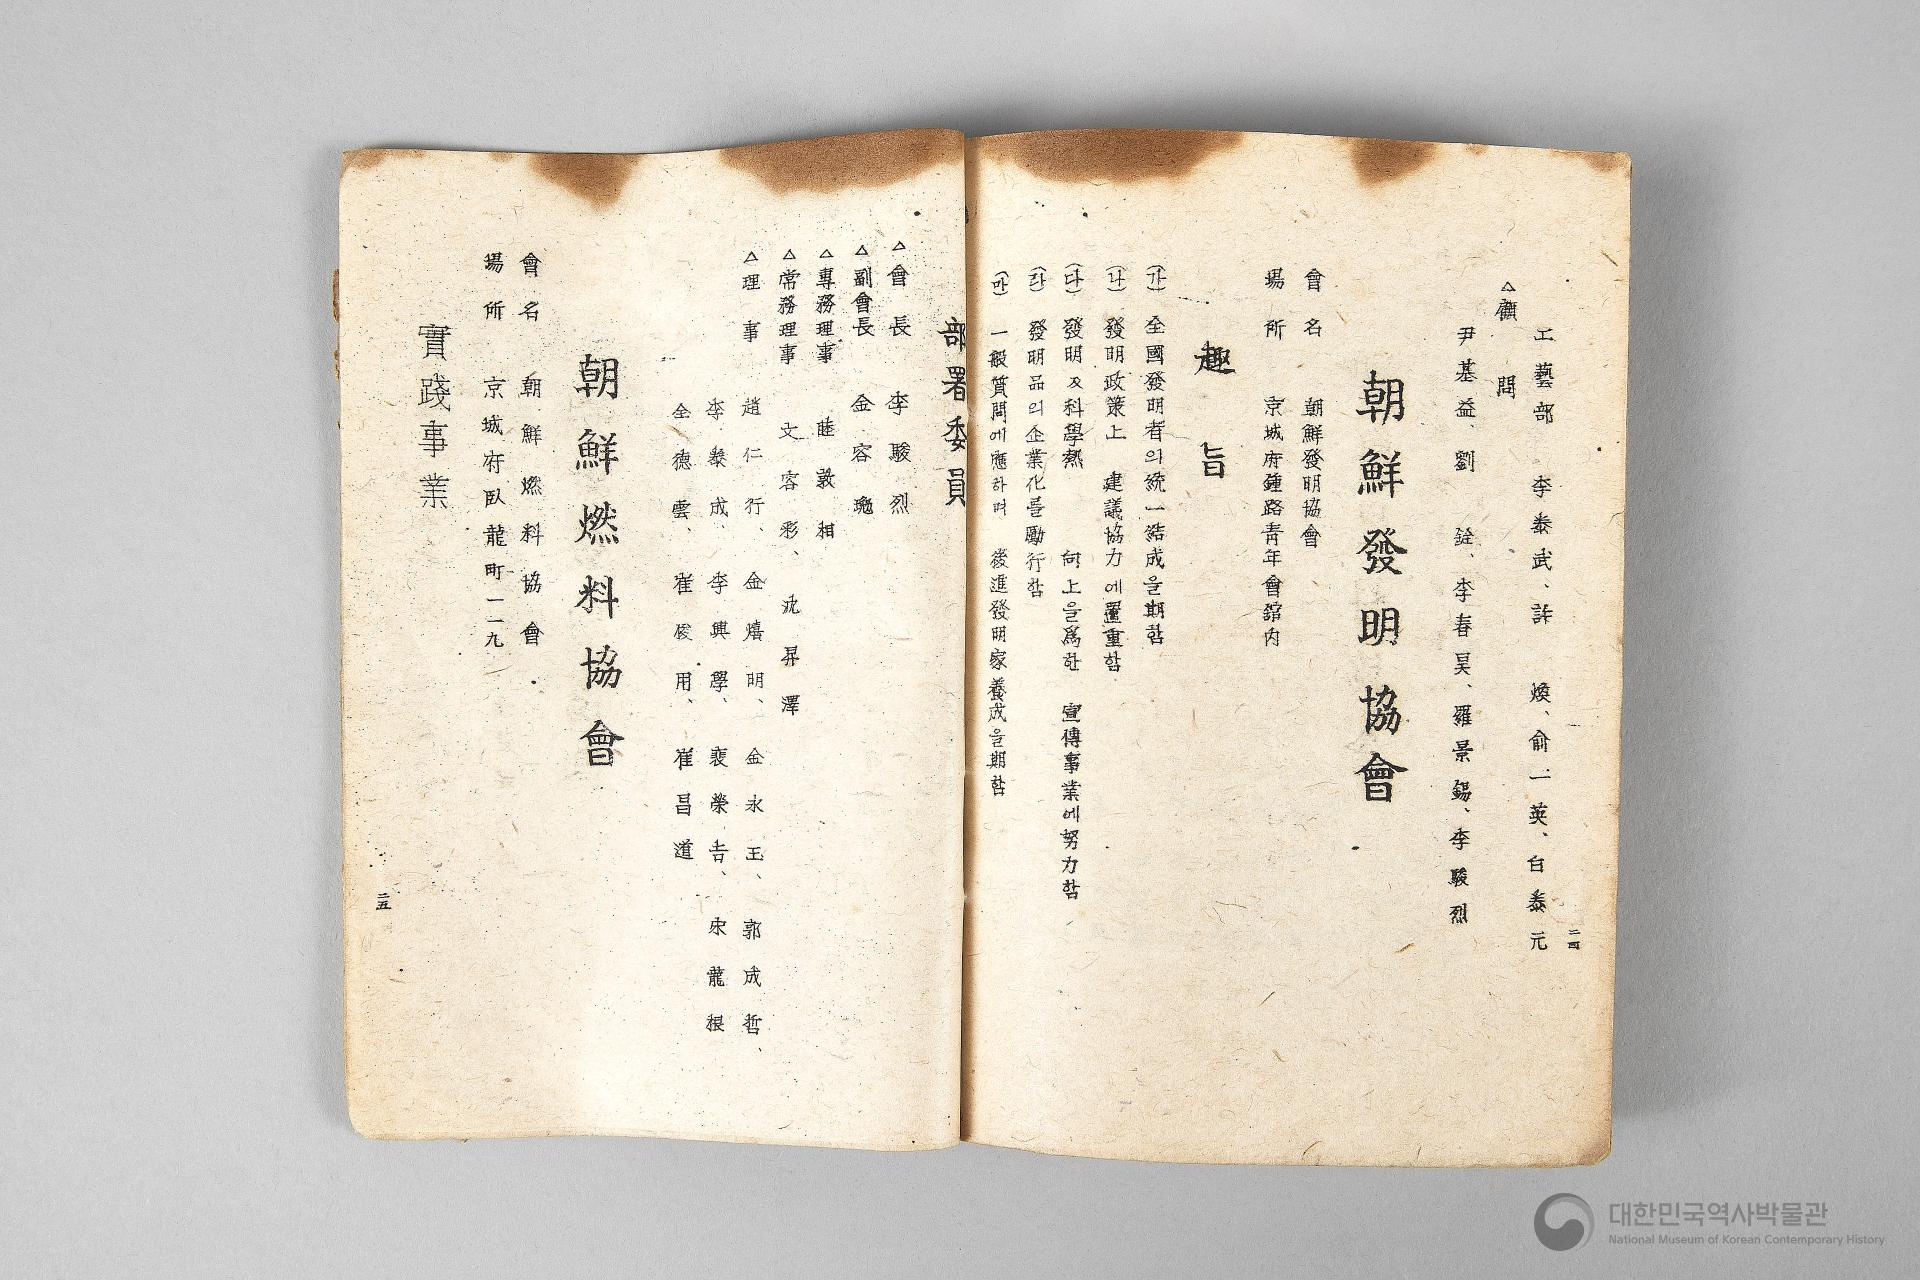 工藝部 李泰武、許 煥、俞一英、白泰元
△顧問
尹基益、劉 銓、李春昊、羅景錫、李駿烈
朝鮮發明協會
會名 朝鮮發明協會
場所 京城府鍾路靑年會舘內
趣旨
(가) 全國發明者의統一結成을期함
(나) 發明政策上 建議協力에置重함
(다) 發明及科學熱 向上을爲한 宣傳事業에努力함
(라) 發明品의企業化를勵行함
(마) 一般質問에應하며 後進發明家養成을期함
二四
部署委員
△會長 李駿烈
△副會長 金容
△專務理事 睦敦相
△常務理事 文容彩、沈昇澤
△理事 趙仁行、金熺明、金永王、郭成哲、
李燦成、李興學、裵榮吉、宋龍根
全德雲、崔俊用、崔昌道
朝鮮燃料協會
會名 朝鮮燃料協會
場所 京城府臥龍町一二九
實踐事業
二五
대한민국역사박물관
National Museum of Korean Contemporary History